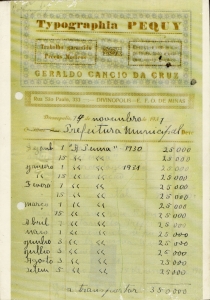 Typographia PEQUY
Trabalho garantido
Preços Modicos
GERALDO CANCIO DA CRUZ
Rua São Paulo, - DIVINOPOLIS - E. F. O. DE MINAS
Divinopolis, 19 novembro 1931
Prefeitura Municipal
Agost 1 "A Semana" 1930 25.000
15 « « 25.000
Janeiro 1 « « 1931 25.000
15 « « 25.000
Fevero 1 « « 25.000
15 « « 25.000
março 1 « « 25.000
15 « « 25.000
Abril 1 « « 25.000
maio 1 « « 25.000
junho 1 « « 25.000
julho 1 « « 25.000
Agosto 1 « « 25.000
setem 1 « « 25.000
a transportar 350.000